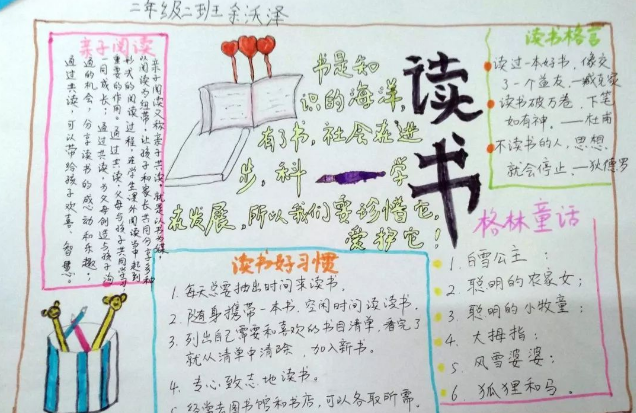 二年级二班 余沃泽
亲子阅读
亲子阅读又称亲子共读,就是以书为媒,
以阅读为纽带,让孩子和家长共同分享多种
形式的阅读过程,在学生课外阅读当中起到
重要的作用。通过共读,父母与孩子共同学习
一同成长;通过共读,为父母创造与孩子沟
通的机会,分享读书的感动和乐趣;
通过共读,可以带给孩子欢喜、智慧。
书是知
识的海洋,
有了书,社会在进
步,科学
在发展,所以我们要珍惜它,
爱护它!
读书
读书格言
读过一本好书,像交
了一个益友—臧克家
读书破万卷,下笔
如有神。——杜甫
不读书的人,思想
就会停止。—狄德罗
读书好习惯
1. 每天总要抽出时间来读书。
2. 随身携带一本书,空闲时间读读书。
3. 列出自己需要和喜欢的书目清单,看完了
就从清单中清除,加入新书。
4. 专心致志地读书。
经常去图书馆和书店,可以各取所需。
格林童话
1. 白雪公主;
2. 聪明的农家女;
3. 聪明的小牧童;
4. 大拇指;
5. 风雪婆婆;
6. 狐狸和马。